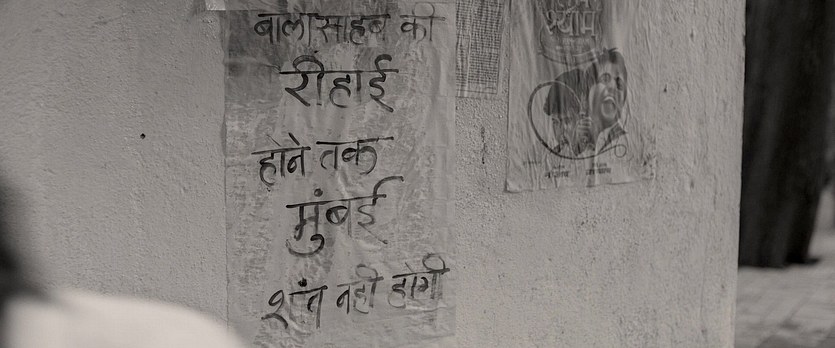 बालासाहब की
रीहाई
होने तक
मुंबई
शांत नही होगी
श्याम